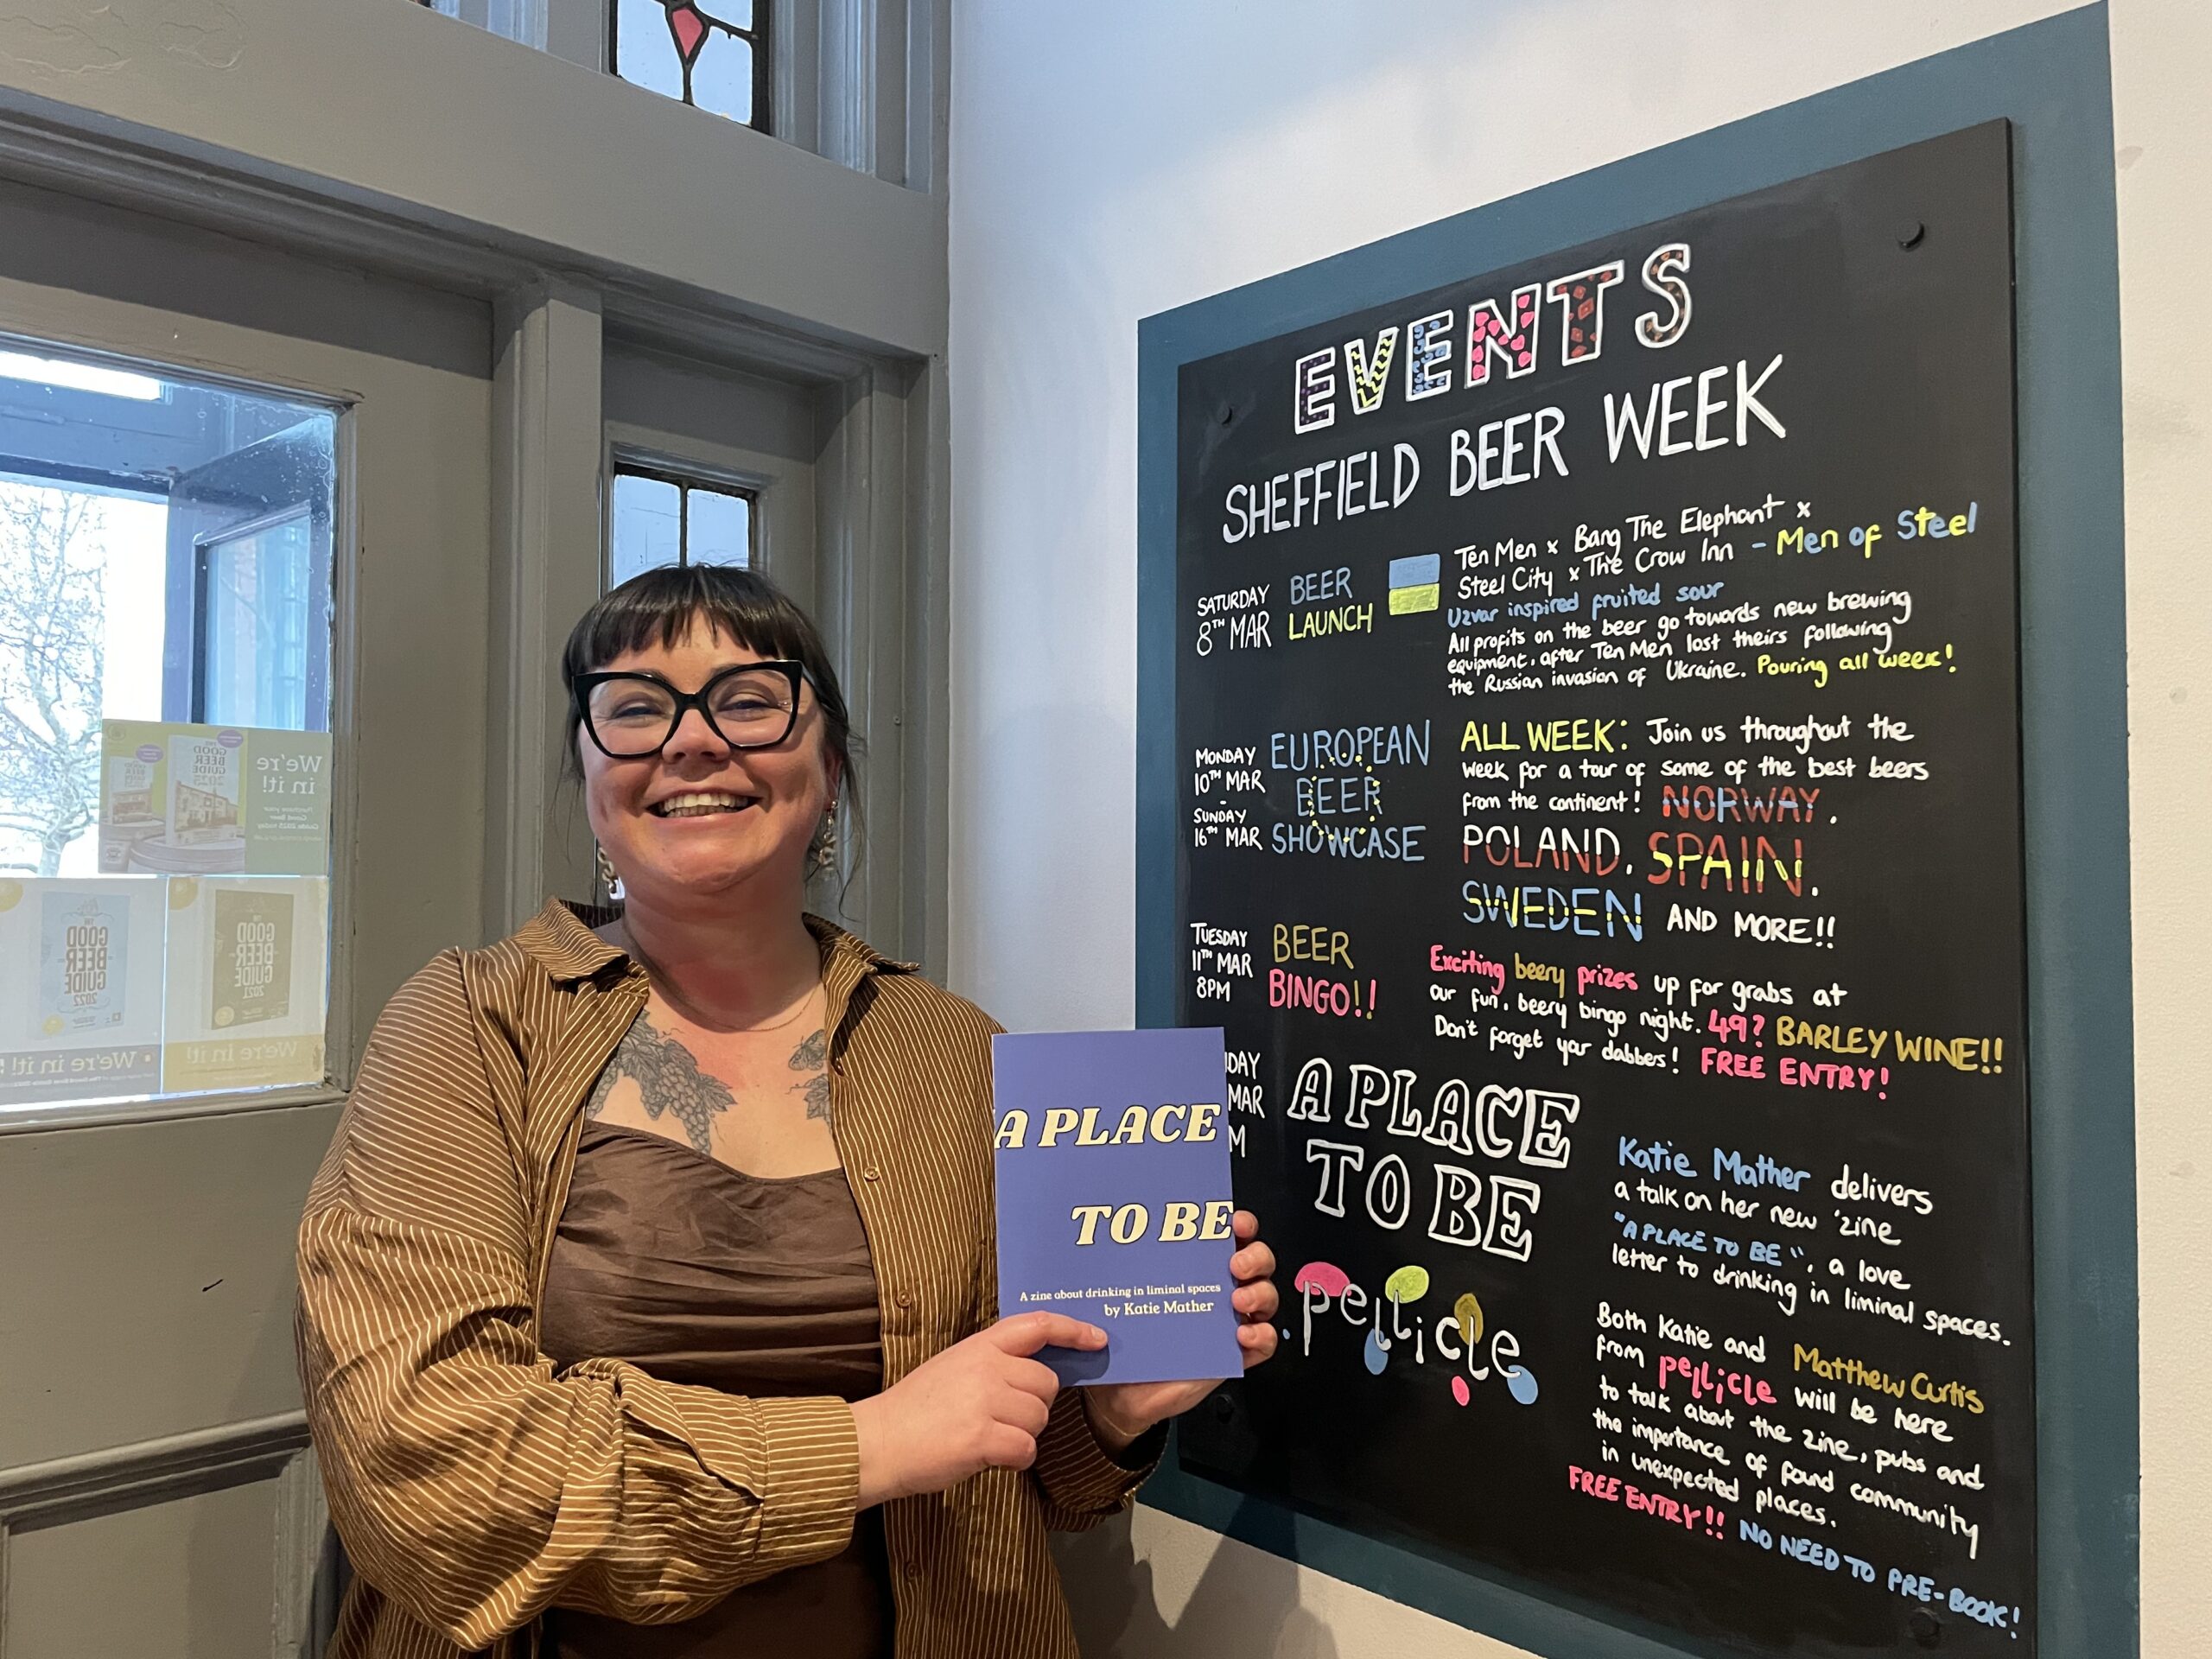 EVENTS
SHEFFIELD BEER WEEK
SATURDAY
8TH MAR
BEER
LAUNCH
Ten Men x Bang The Elephant x
Steel City x The Crow Inn - Men of Steel
Uzvar inspired fruited sour
All profits on the beer go towards new brewing
equipment, after Ten Men lost theirs following
the Russian invasion of Ukraine. Pouring all week!
MONDAY
10TH MAR
-
SUNDAY
16TH MAR
EUROPEAN
BEER
SHOWCASE
ALL WEEK: Join us throughout the
week for a tour of some of the best beers
from the continent! NORWAY,
POLAND, SPAIN,
SWEDEN AND MORE!!
TUESDAY
11TH MAR
8PM
BEER
BINGO!!
Exciting beery prizes up for grabs at
our fun, beery bingo night. 49? BARLEY WINE!!
Don't forget your dabbers! FREE ENTRY!
DAY
MAR
M
A PLACE
TO BE
pellicle
Katie Mather delivers
a talk on her new 'zine
"A PLACE TO BE", a love
letter to drinking in liminal spaces.
Both Katie and Matthew Curtis
from pellicle will be here
to talk about the zine, pubs and
the importance of found community
in unexpected places.
FREE ENTRY!! NO NEED TO PRE-BOOK!
A PLACE
TO BE
A zine about drinking in liminal spaces
by Katie Mather
We're
in it!
Purchase your
Good Beer
Guide 2025 today
GOOD
BEER
GUIDE
2025
THE
GOOD
BEER
GUIDE
2022
We're in it!
THE
GOOD
BEER
GUIDE
2021
We're in it!